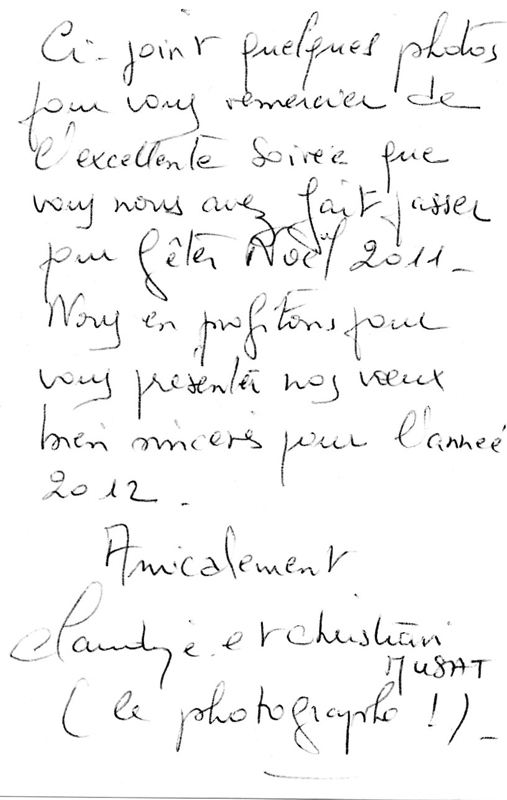 Ci-joint quelques photos
pour vous remercier de
l'excellente soirée que
vous nous avez fait passer
pour fêter Noël 2011 -
Nous en profitons pour
vous présenter nos vœux
bien sincères pour l'année
2012.
Amicalement
Claudye et Christian
MUSAT
(le photographe !) -